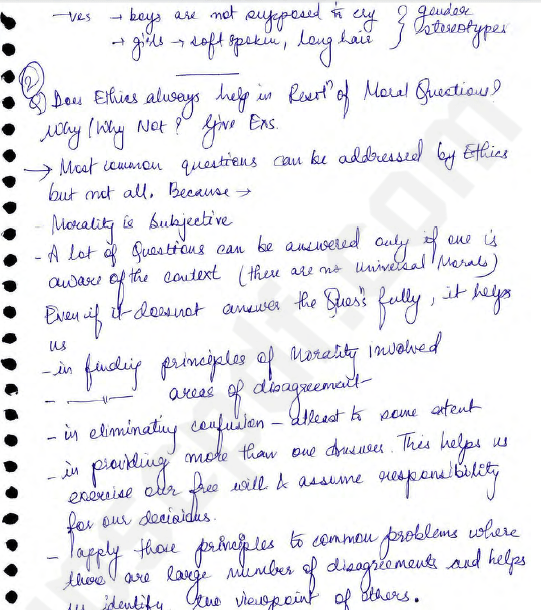 -ves → boys are not supposed to cry } gender
→ girls → soft spoken, long hair } stereotypes
②
Q) Does Ethics always help in Resolⁿ of Moral Questions?
Why/Why Not? Give Exs.
→ Most common questions can be addressed by Ethics
but not all. Because →
- Morality is Subjective
- A lot of Questions can be answered only if one is
aware of the context (there are no Universal Morals)
Even if it doesnot answer the Quesⁿ fully, it helps
us
- in finding principles of Morality involved
- —"— areas of disagreement
- in eliminating confusion - atleast to some extent
- in providing more than one Answer. This helps us
exercise our free will & assume responsibility
for our decisions.
- apply those principles to common problems where
there are large number of disagreements and helps
us identify the viewpoint of others.